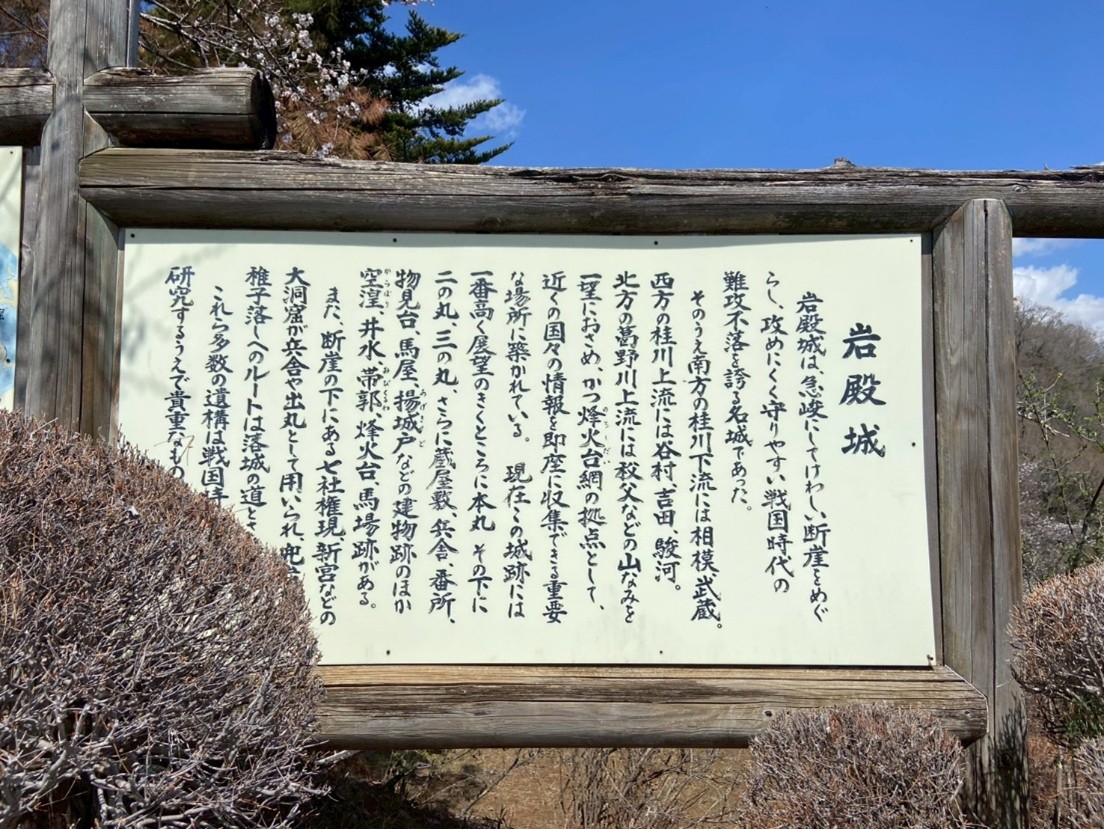 岩殿城
岩殿城は、急峻にしてけわしい断崖をめぐ
らし、攻めにくく守りやすい戦国時代の
難攻不落を誇る名城であった。
そのうえ南方の桂川下流には相模、武蔵。
西方の桂川上流には谷村、吉田、駿河。
北方の葛野川上流には秩父などの山なみを
一望におさめ、かつ烽火台網の拠点として、
近くの国々の情報を即座に収集できる重要
な場所に築かれている。 現在この城跡には
一番高く展望のきくところに本丸 その下に
二の丸、三の丸、さらに蔵屋敷、兵舎、番所、
物見台、馬屋、揚城戸などの建物跡のほか
空湟、井水、帯郭、烽火台、馬場跡がある。
また、断崖の下にある七社権現、新宮などの
大洞窟が兵舎や出丸として用いられ、兜
稚子落しへのルートは落城の道
これら多数の遺構は戦国時
研究するうえで貴重なもの